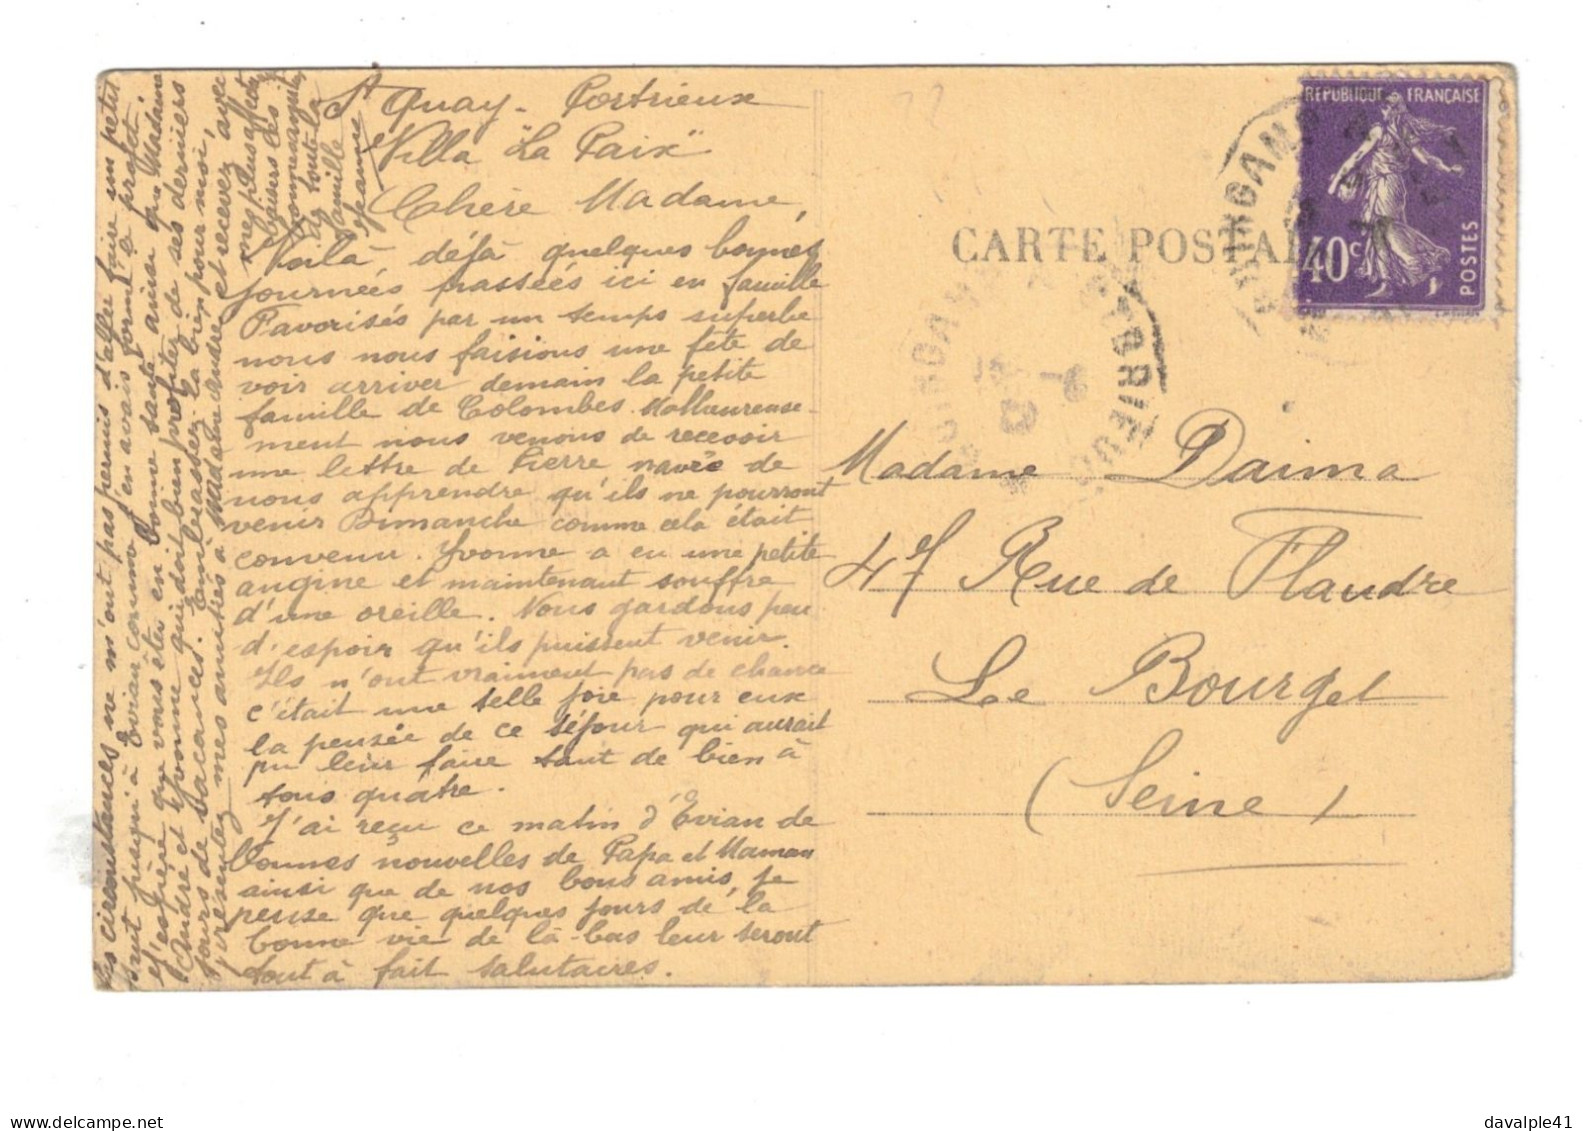 St Quay - Portrieux
Villa "La Paix"
Chère Madame,
Voilà déjà quelques bonnes
journées passées ici en famille
Favorisés par un temps superbe
nous nous faisions une fête de
voir arriver demain la petite
famille de Colombes. Malheureuse-
ment nous venons de recevoir
une lettre de Pierre navré de
nous apprendre qu'ils ne pourront
venir Dimanche comme cela était
convenu. Yvonne a eu une petite
angine et maintenant souffre
d'une oreille. Nous gardons peu
d'espoir qu'ils puissent venir.
Ils n'ont vraiment pas de chance
c'était une telle joie pour eux
la pensée de ce séjour qui aurait
pu leur faire tant de bien à
tous quatre.
J'ai reçu ce matin d'Evian de
bonnes nouvelles de Papa et Maman
ainsi que de nos bons amis, je
pense que quelques jours de la
bonne vie de là-bas leur seront
tout à fait salutaires.
les circonstances ne m'ont pas permis d'aller faire un petit
saut jusqu'à Evian comme j'en avais formé le projet.
J'espère que vous êtes en bonne santé ainsi que Madame
André et Yvonne qui doit bien profiter de ses derniers
jours de vacances. Embrassez la bien pour moi,
présentez mes amitiés à Madame André et recevez avec
mes plus affectueux
baisers les
de toute la
famille
Jeanne
CARTE POSTA
REPUBLIQUE FRANCAISE
40c
POSTES
Madame Daima
47 Rue de Flandre
Le Bourget
(Seine)
davalple41